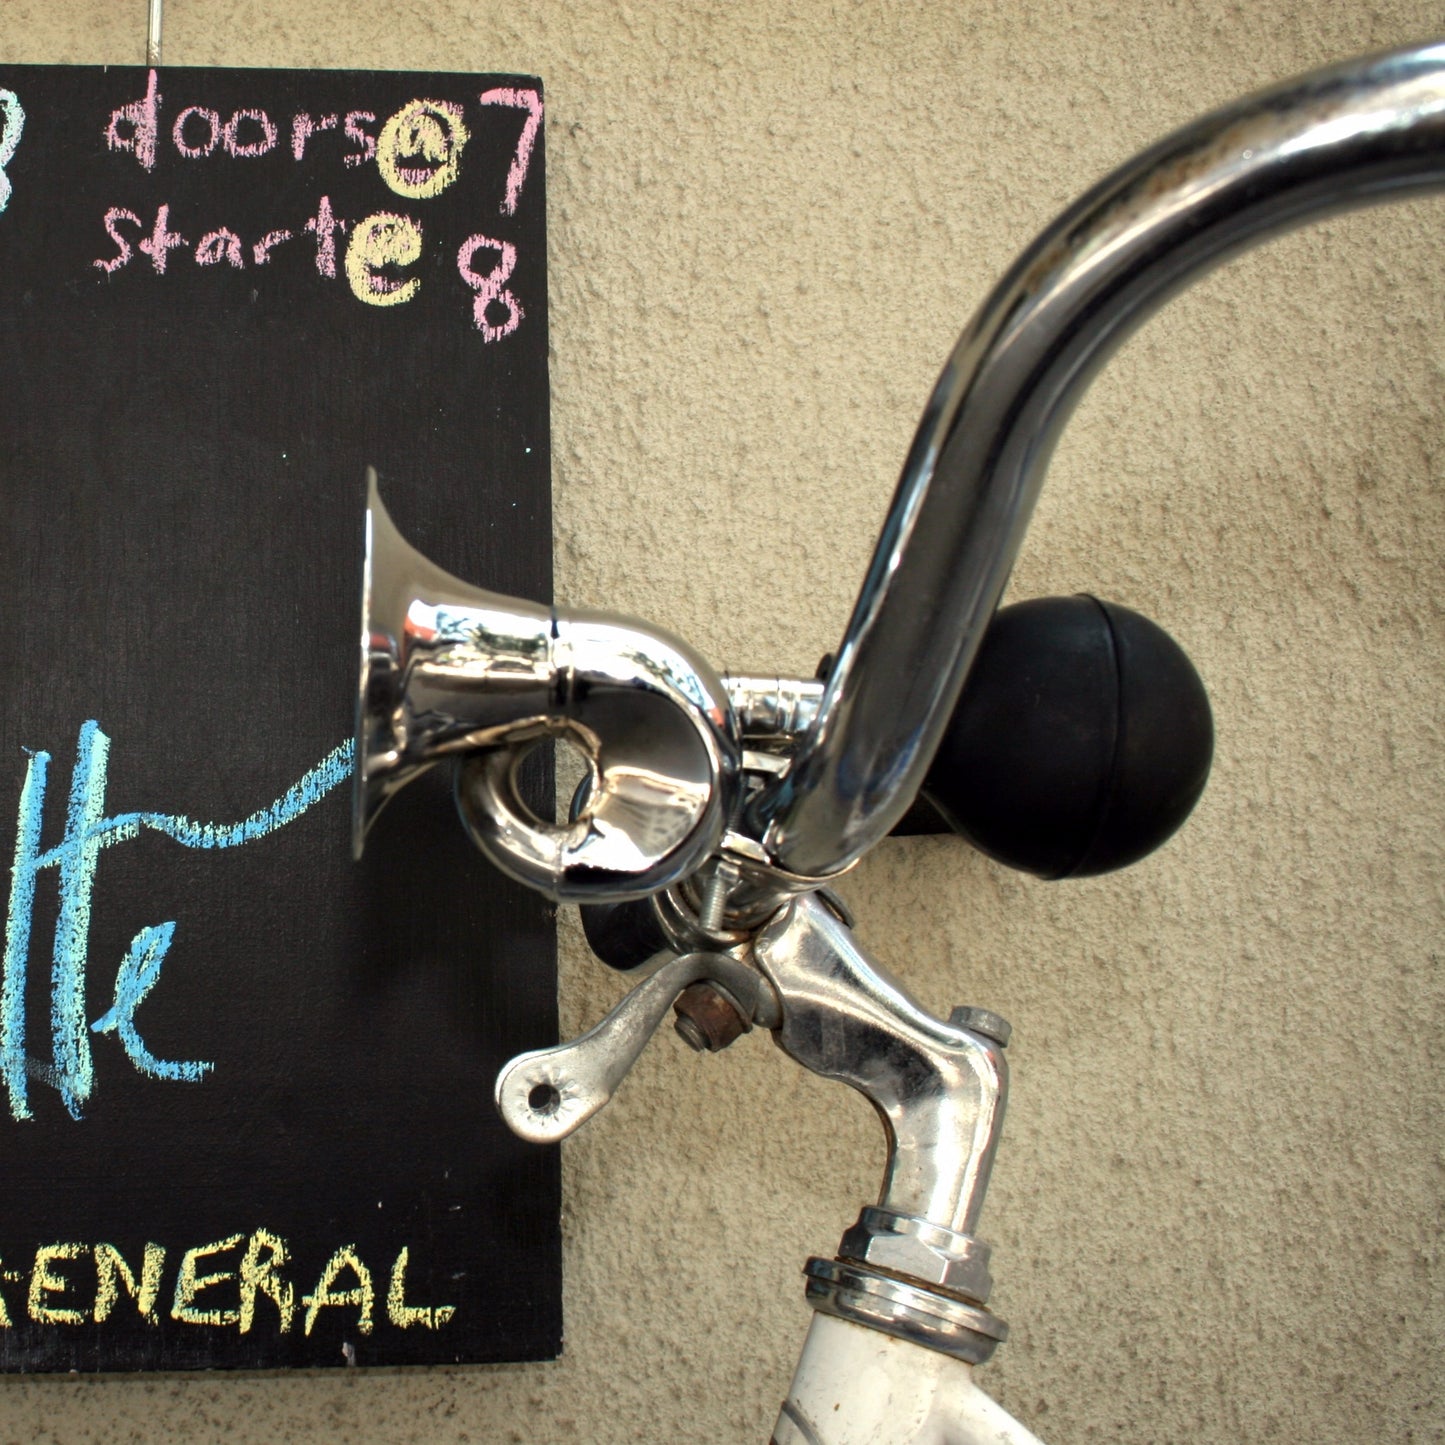 doors @ 7
start @ 8
tte
GENERAL